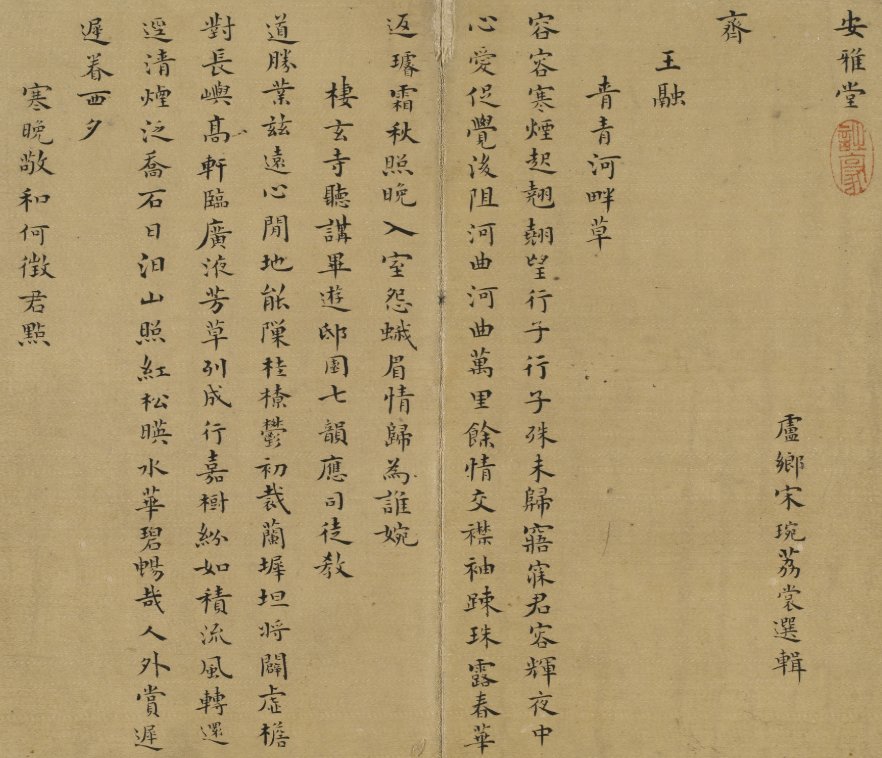 安雅堂
盧鄉宋琬荔裳選輯
齊
王融
青青河畔草
容容寒煙起翹翹望行子行子殊未歸寤寐君容輝夜中
心愛促覺後阻河曲河曲萬里餘情交襟袖踈珠露春華
返璩霜秋照晚入室怨蛾眉情歸為誰婉
棲玄寺聽講畢遊邸園七韻應司徒教
道勝業茲遠心閒地能隟桂橑鬱初裁蘭墀坦將闢虛檐
對長嶼髙軒臨廣液芳草列成行嘉樹紛如積流風轉還
逕清煙泛喬石日汨山照紅松暎水華碧暢哉人外賞遲
遲眷西夕
寒晚敬和何徵君點